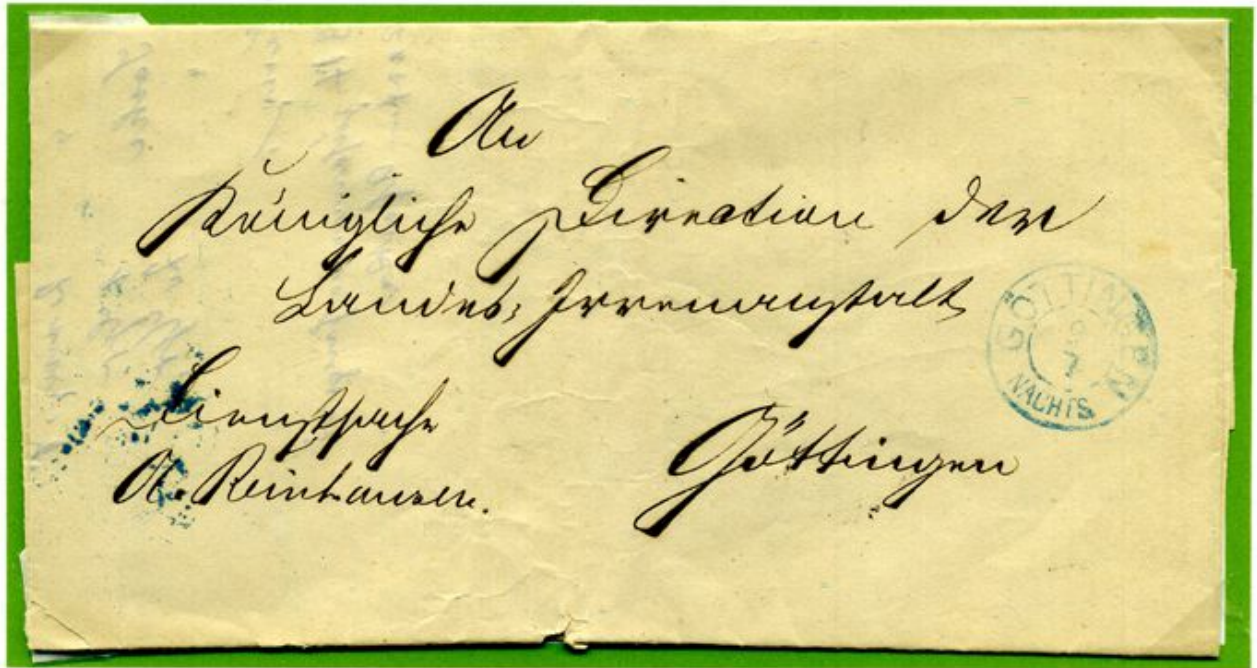 An
Königliche Direction der
Landes-Irrenanstalt
GÖTTINGEN
9
7
NACHTS
Dienstsache
Göttingen
A. Reinhausen.